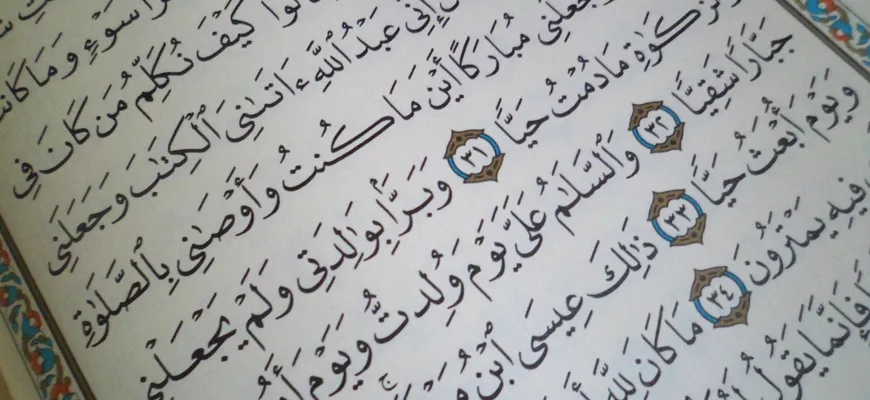 سَوْءٍ وَمَا كَانَت
كَيْفَ نُكَلِّمُ مَن كَانَ فِي
إِنِّي عَبْدُ ٱللَّهِ ءَاتَىٰنِيَ ٱلْكِتَٰبَ وَجَعَلَنِي
وَجَعَلَنِي مُبَارَكًا أَيْنَ مَا كُنتُ وَأَوْصَٰنِي بِٱلصَّلَوٰةِ
وَٱلزَّكَوٰةِ مَا دُمْتُ حَيًّا ٣١ وَبَرًّۢا بِوَٰلِدَتِي وَلَمْ يَجْعَلْنِي
جَبَّارًا شَقِيًّا ٣٢ وَٱلسَّلَٰمُ عَلَيَّ يَوْمَ وُلِدتُّ وَيَوْمَ
وَيَوْمَ أُبْعَثُ حَيًّا ٣٣ ذَٰلِكَ عِيسَى ٱبْنُ
فِيهِ يَمْتَرُونَ ٣٤ مَا كَانَ لِلَّهِ
فَإِنَّمَا يَقُولُ